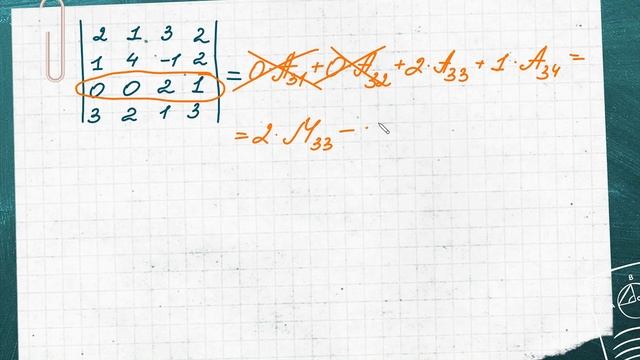 2 1 3 2
1 4 -1 2
0 0 2 1
3 2 1 3
= 0 A₃₁ + 0 A₃₂ + 2·A₃₃ + 1·A₃₄ =
= 2·M₃₃ - ·
B